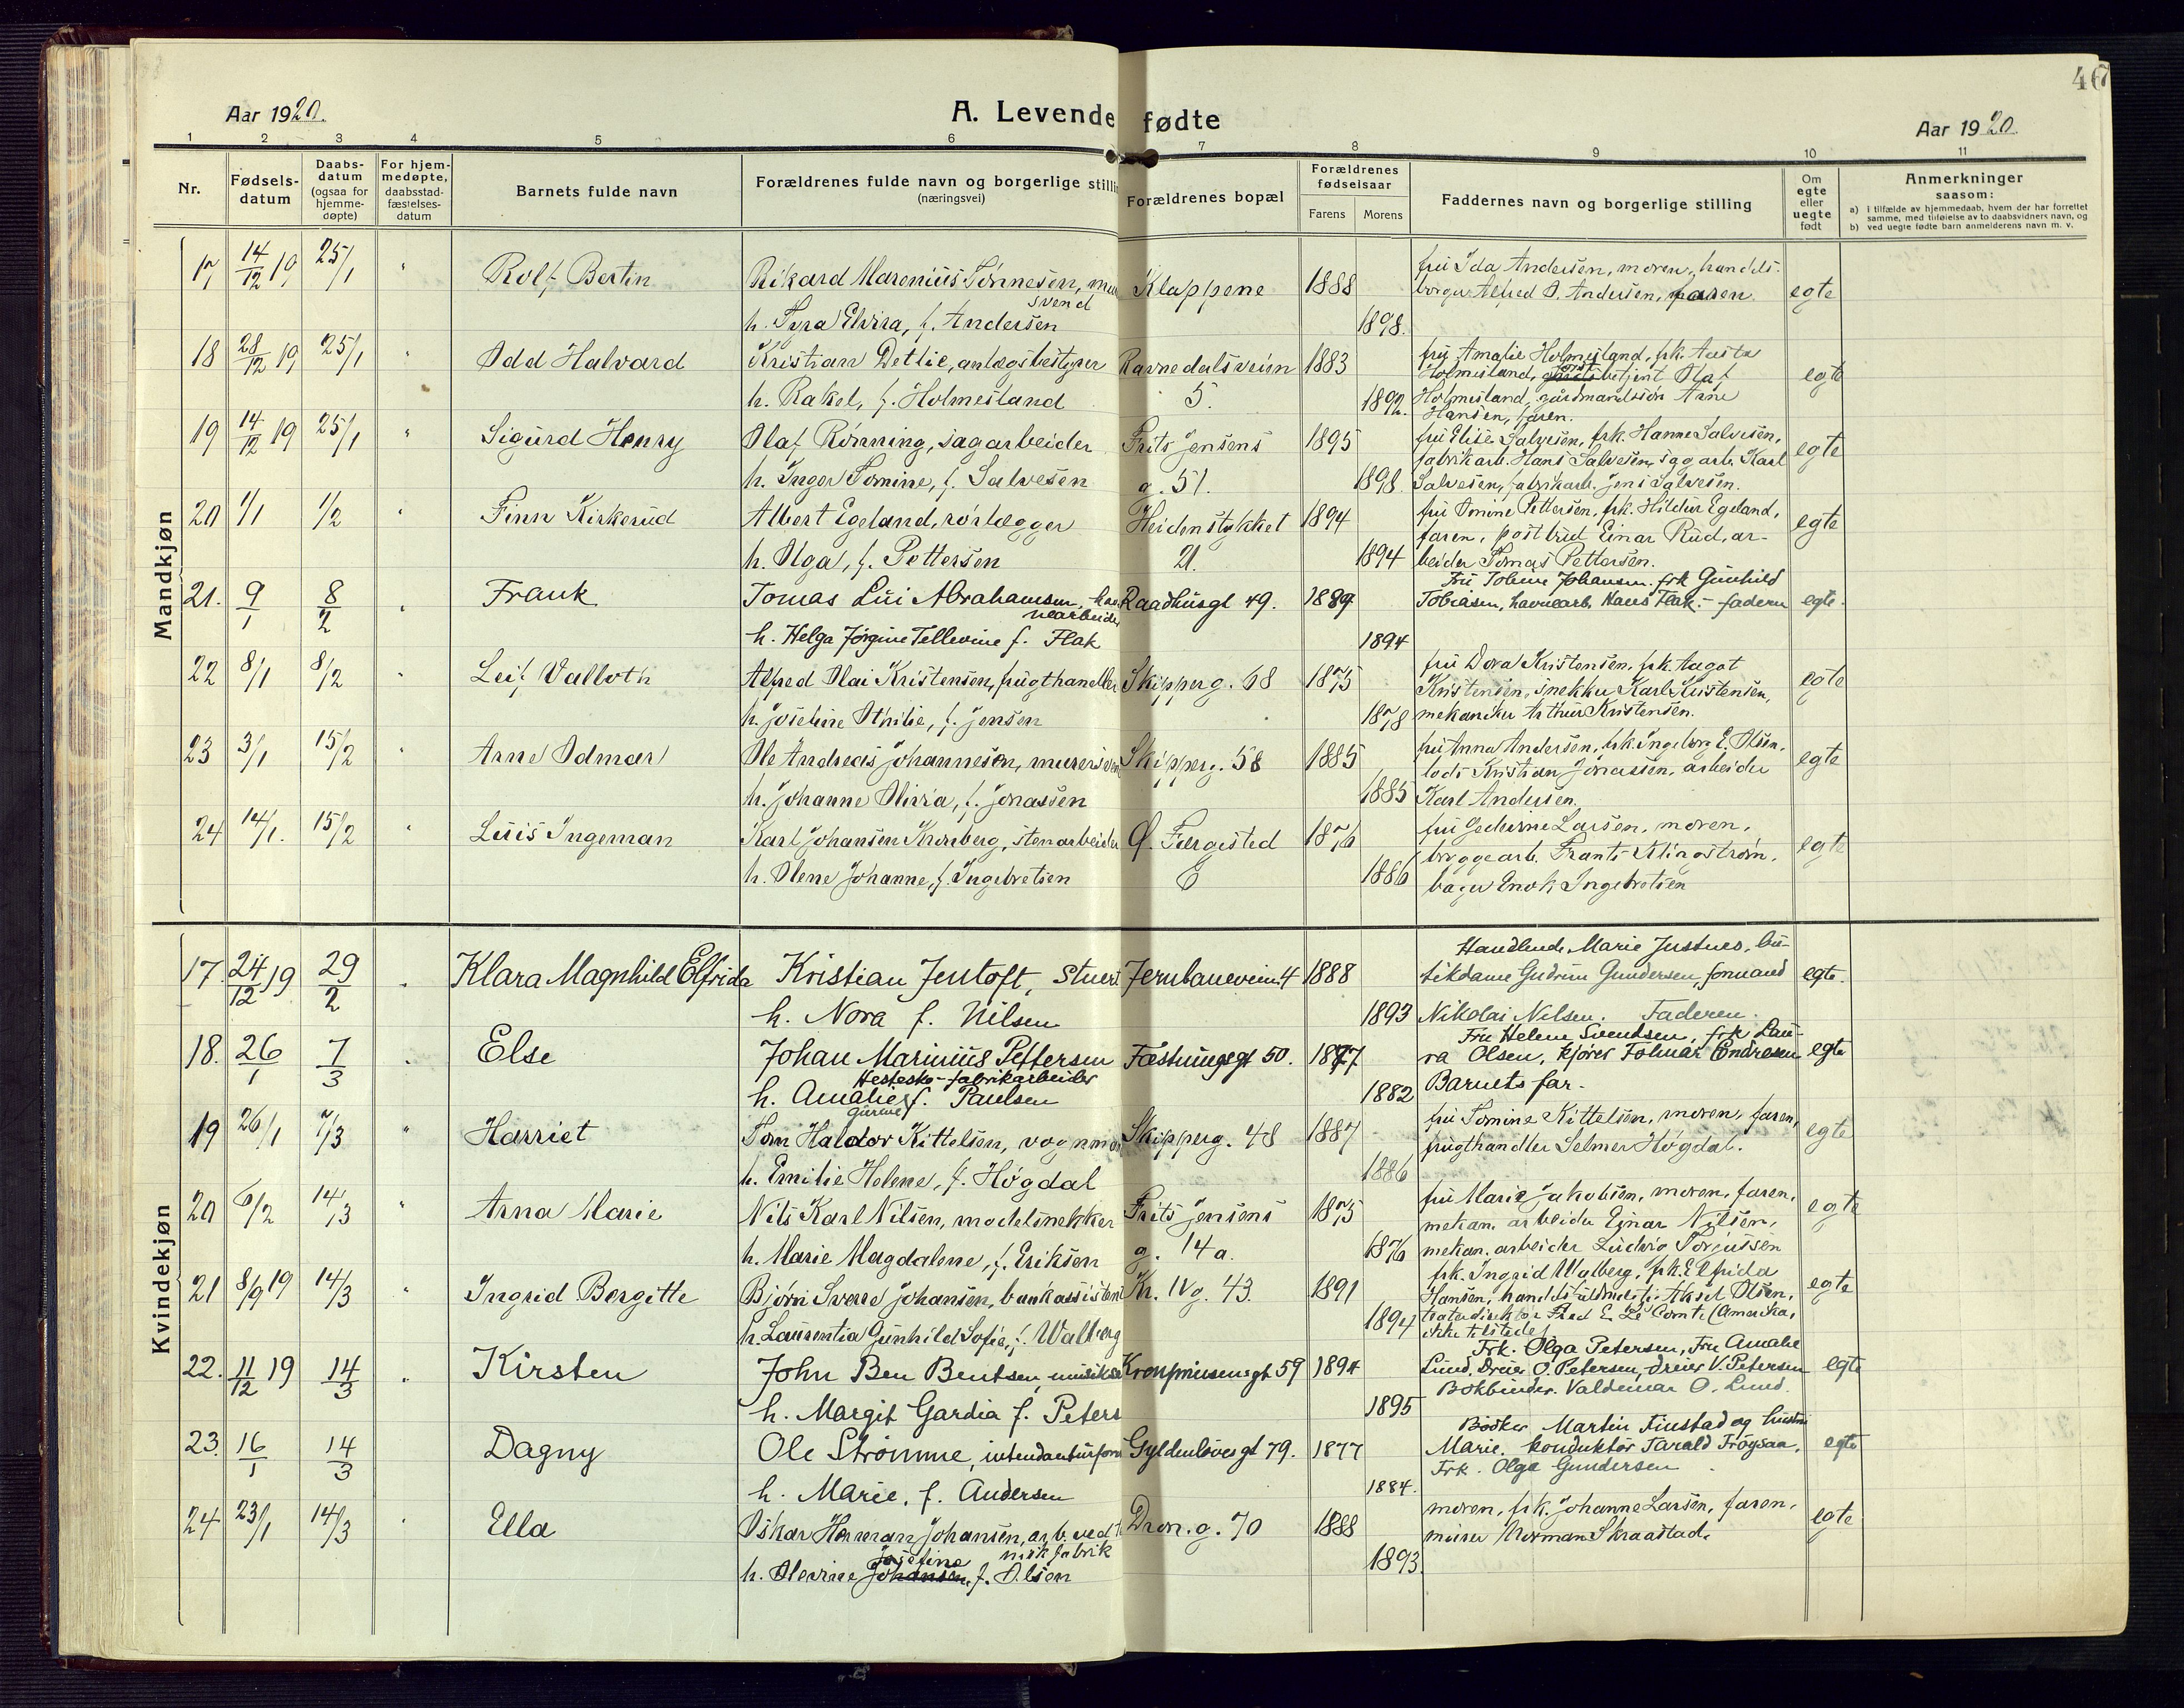 46
Aar 1920. A. Levende fødte Aar 1920.
1 2 3 4 5 6 7 8 9 10 11
Nr.
Fødsels-
datum
Daabs-
datum
(ogsaa for
hjemme-
døpte)
For hjem-
medøpte,
daabsstad-
fæstelses-
datum
Barnets fulde navn
Forældrenes fulde navn og borgerlige stilli
(næringsvei)
Forældrenes bopæl
Forældrenes
fødselsaar
Farens Morens
Faddernes navn og borgerlige stilling
Om
egte
eller
uegte
født
Anmerkninger
saasom:
a) i tilfælde av hjemmedaab, hvem der har forrettet
samme, med tilføielse av to daabsvidners navn, og
b) ved uegte fødte barn anmelderens navn m. v.
Mandkjøn
17 14/12 19 25/1 " Rolf Bertin Rikard Marenius Tønnesen, mur Klappene 1888 fru Ida Andersen, moren, handels-
svend borger Alfred O. Andersen, faren egte
h. Tyra Elvira, f. Andersen 1898.
18 28/12 19 25/1 " Odd Halvard Kristian Detlie, anlægsbestyrer Ravnedalsveien 1883 fru Amalie Holmesland, frk. Aasta
Holmesland, betjent Olaf egte
h. Rakel, f. Holmesland 5. 1892. Holmesland, gårdmandssøn Arne
Hansen, faren.
19 14/12 19 25/1 " Sigurd Henry Olaf Rønning, sagarbeider Frits Jensens 1895 fru Elise Salvesen, frk. Hanne Salvesen,
fabrikarb. Hans Salvesen, sagarb. Karl egte
h. Inger Tomine, f. Salvesen g. 51. 1898. Salvesen, fabrikarb. Jens Salvesen.
20 1/1 1/2 " Finn Kirkerud Albert Egeland, rørlægger Heidenstykket 1894 fru Tomine Pettersen, frk. Hildur Egeland,
faren, postbud Einar Rud, ar- egte
h. Olga, f. Pettersen 21. 1894 beider Tomas Pettersen.
21. 9/1 8/2 " Frank Tomas Lui Abrahamsen, hav Raadhusgt 49. 1889 Fru Toline Johansen. frk Gunhild
nearbeider Tobiasen, havnearb. Hans Flak. - faderen egte.
h. Helga Jørgine Tellevine f. Flak 1894
22 8/1 8/2 " Leif Valloth Alfred Olai Kristensen, frugthandler Skipperg. 68 1875 fru Dora Kristensen, frk. Aagot
Kristensen, snekker Karl Kristensen, egte
h. Josefine Othilie, f. Jensen 1878 mekaniker Arthur Kristensen.
23 3/1 15/2 " Arne Odmar Ole Andreas Johannesen, murersven Skipperg. 58 1885 fru Anna Andersen, frk. Ingeborg E. Olsen,
lods Kristian Jonassen, arbeider egte
h. Johanne Olivia, f. Jonassen 1885 Karl Andersen.
24 14/1. 15/2 " Luis Ingeman Karl Johansen Kronberg, stenarbeider Ø. Færgested 1876 fru Larsen, moren,
bryggearb. Frants Klingstrøm, egte
h. Olene Johanne, f. Ingebretsen 6 1886 bager Enok Ingebretsen
Kvindekjøn
17. 24/12 19 29/2 " Klara Magnhild Elfrida Kristian Jentoft, stuer Jernbaneveien 4 1888 Handlende Marie Justnes, bu-
tikdame Gudrun Gundersen, formand egte.
h. Nora f. Nilsen 1893 Nikolai Nilsen. Faderen.
18. 26/1 7/3 " Else Johan Marinius Pettersen Fæstningsgt 50. 1877 Fru Helene Svendsen, frk Lau-
Hestesko-fabrikarbeider ra Olsen, kjører Tolmar Endresen egte
h. Amalie f. Paulsen 1882 Barnets far.
19 26/1 7/3 " Harriet Tom Haldor Kittelsen, vognman Skipperg. 48 1887 fru Tomine Kittelsen, moren, faren,
frugthandler Selmer Høgdal. egte
h. Emilie Helene, f. Høgdal 1886
20 6/2 14/3 " Anna Marie Nils Karl Nilsen, modelsnekker Frits Jensens 1875 fru Marie Jakobsen, moren, faren,
mekan. arbeider Einar Nilsen, egte
h. Marie Magdalene, f. Eriksen g. 14a. 1876 mekan. arbeider Ludvig Torjussen
21 8/9 19 14/3 " Ingrid Bergitte Bjørn Sverre Johansen, bankassistent Kr. IVg. 43. 1891 frk. Ingrid Walberg, frk. Elfrida
Hansen, Aksel Olsen, egte
h. Laurentia Gunhild Sofie, f. Walberg 1894 teaterdirektør Fred E Le Comte (Amerika,
ikke tilstede)
22. 11/12 19 14/3 " Kirsten John Ben Bentsen, musiker Kronprinsensgt 59 1894 Frk. Olga Petersen, Fru Amalie
Lund, Dreier O. Petersen, dreier V. Petersen egte
h. Margit Gardia f. Peters 1895 Bokbinder. Valdemar O. Lund.
23. 16/1 14/3 Dagny Ole Strømme, intendanturforv Gyldenløvesgt 79. 1877 Bødker Martin Finstad og hustru
Marie. konduktør Tarald Frøysaa, egte
h. Marie, f. Andersen 1884. Frk. Olga Gundersen
24 23/1 14/3 " Ella Oskar Herman Johansen, arb. ved Dron. g. 70 1888 moren, frk. Johanne Larsen, faren,
fabrik murer Norman Skraastad. egte
h. Olevine Josefine Johansen, f. Olsen 1893.